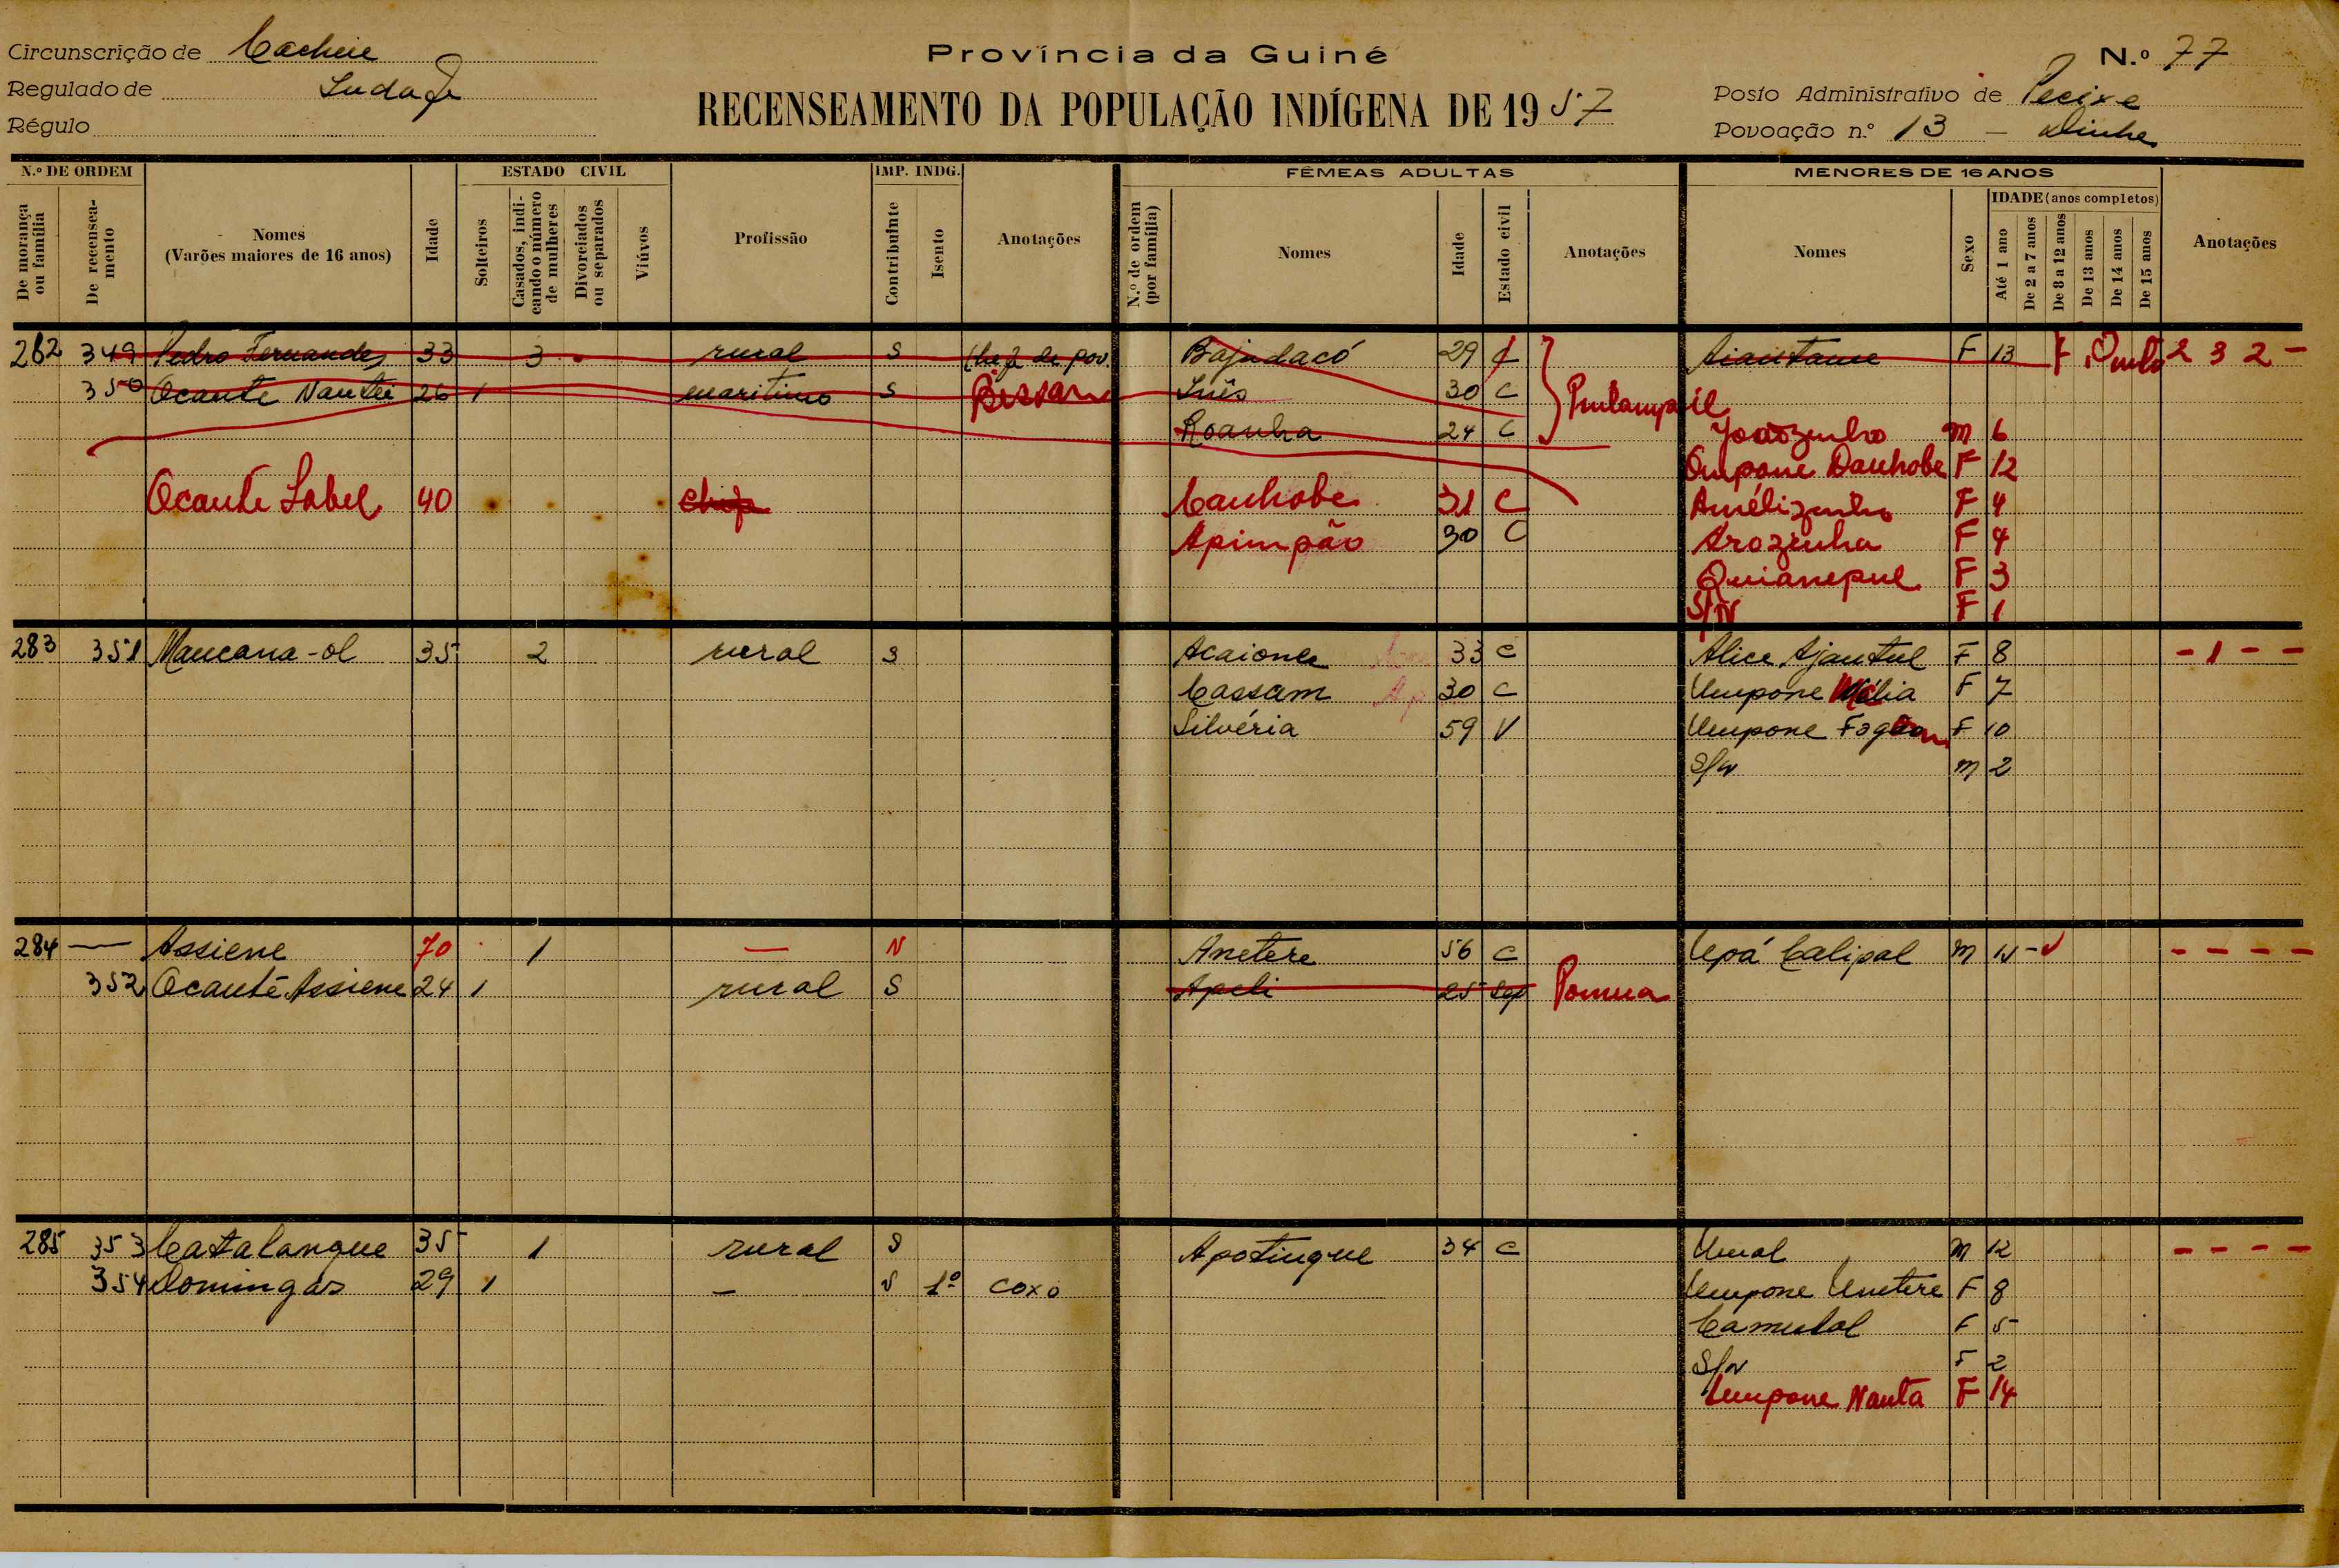 Circunscrição de Cacheu Província da Guiné N.º 77
Regulado de
Posto Administrativo de Pecixe
RECENSEAMENTO DA POPULAÇÃO INDÍGENA DE 1957
Régulo Povoação n.º 13 —
N.º DE ORDEM ESTADO CIVIL IMP. INDG. FÊMEAS ADULTAS MENORES DE 16 ANOS
De morança ou família
De recensea-mento
Nomes
(Varões maiores de 16 anos)
Idade
Solteiros
Casados, indi-cando o número de mulheres
Divorciados ou separados
Viúvos
Profissão
Contribuinte
Isento
Anotações
N.º de ordem (por família)
Nomes
Idade
Estado civil
Anotações
Nomes
Sexo
IDADE (anos completos)
Até 1 ano
De 2 a 7 anos
De 8 a 12 anos
De 13 anos
De 14 anos
De 15 anos
Anotações
282 349 Pedro Fernandes 33 3 rural S Chefe de pov. Bajudacó 29 F 13 2 3 2 -
350 Ocante 26 1 maritimo S Bissau Inês 30 C
Roanha 24 C Joãozinho M 6
F 12
Ocante 40 Canhobe 31 C F 4
Apimpão 30 C Arozinha F 4
F 3
S/N F 1
283 351 Mancana-ol 35 2 rural S Acaione 33 C Alice Ajantul F 8 - 1 - -
Cassam 30 C Umpone F 7
Silvéria 59 V Umpone F 10
S/N M 2
284 — Assiene 70 1 — N Anetere 56 C Upá Calipal M - - - -
352 Ocante Assiene 24 1 rural S Apeli 25 sep
285 353 Catalanque 35 1 rural S Apotingue 34 C M 12 - - - -
354 Domingas 29 1 - 1º coxo Umpone F 8
F 5
S/N F 2
Umpone Nanta F 14